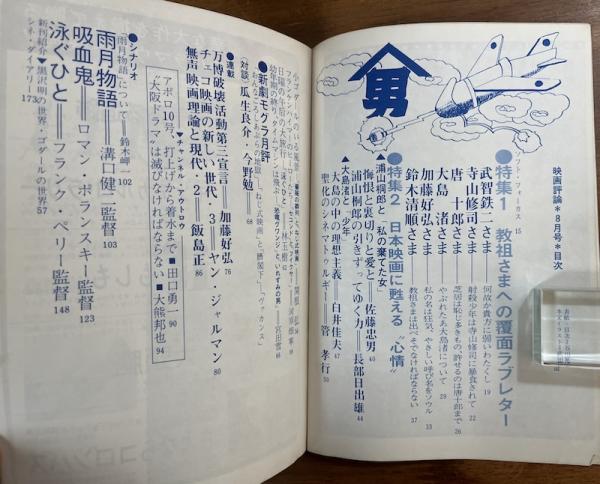 映画評論*8月号*目次
男
フロント・フォーカス 15
●特集1 教祖さまへの覆面ラブレター
武智鉄二さま 何故か貴方に弱いわたくし 19
寺山修司さま 射殺少年は寺山修司に暴食されて 22
唐十郎さま 芝居は恥じ多きもの許せるのは唐十郎まで 26
大島渚さま やぶれたあと大島渚について 29
加藤好弘さま 私の名は狂気、やさしい呼び名をソウル 33
鈴木清順さま 教祖さまは出べそでなければならない 37
●特集2 日本映画に甦える〝心情〟
◀浦山桐郎と「私の棄てた女」
悔恨と裏切りと愛と══佐藤忠男 40
浦山桐郎の引きずってゆく力══長部日出雄 44
◀大島渚と「少年」
大島の中の理想主義══白井佳夫 47
聖化のシネマトゥルギー══管孝行 50
小ゴダールのいる風景
フランケンハイマーのヒーローたち
日曜の午後の大旅行
幼年期の終り、タイムマシンは飛ぶ
●新劇モグラ月評
(対談)瓜生良介・今野勉 68
●連載
万博破壊活動第三宣言══加藤好弘 76
チェコ映画の新しい世代・3══ヤン・ジャルマン 80
無声映画理論と現代・2══飯島正 86
▼チャンネル・アウトロウ
アポロ10号、打上げから着水まで■田口勇一 90
〝大阪ドラマ〟は滅びなければならない■大熊邦也 94
●シナリオ
「雨月物語」について══鈴木岬一 102
雨月物語══溝口健二監督 103
吸血鬼══ロマン・ポランスキー監督 123
泳ぐひと══フランク・ペリー監督 148
新刊紹介▼黒沢明の世界・ゴダールの世界 57
シネ・ダイアリー 173